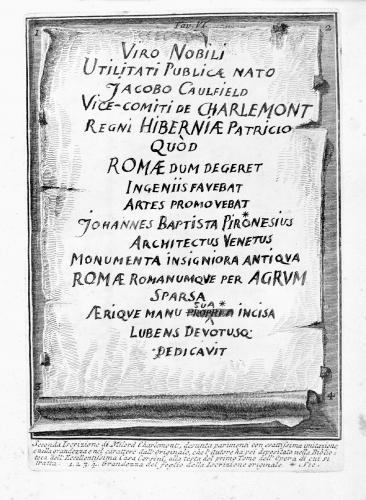 Tav. VI.
1 2
Viro Nobili
Utilitati Publicæ nato
Jacobo Caulfield
Vice-comiti de CHARLEMONT
Regni HIBERNIÆ Patricio
Quòd
ROMÆ dum degeret
Ingeniis favebat
Artes promovebat
Johannes Baptista Pironesius
Architectus Venetus
Monumenta insigniora antiqua
ROMÆ Romanumque per AGRVM
Sparsa
sua*
Ærique manu propria incisa
Lubens Devotusq:
Dedicavit
3 4
Seconda Iscrizione di Milord Charlemont, desunta parimenti con esattissima imitazione
nella grandezza e nel carattere dall'originale, che l'Autore ha poi depositato nella Biblio-
teca dell'Eccellentissima Casa Corsini, alla testa del primo Tomo dell'Opera di cui si
tratta. 1. 2. 3. 4. Grandezza del foglio della Iscrizione originale. * Sic.